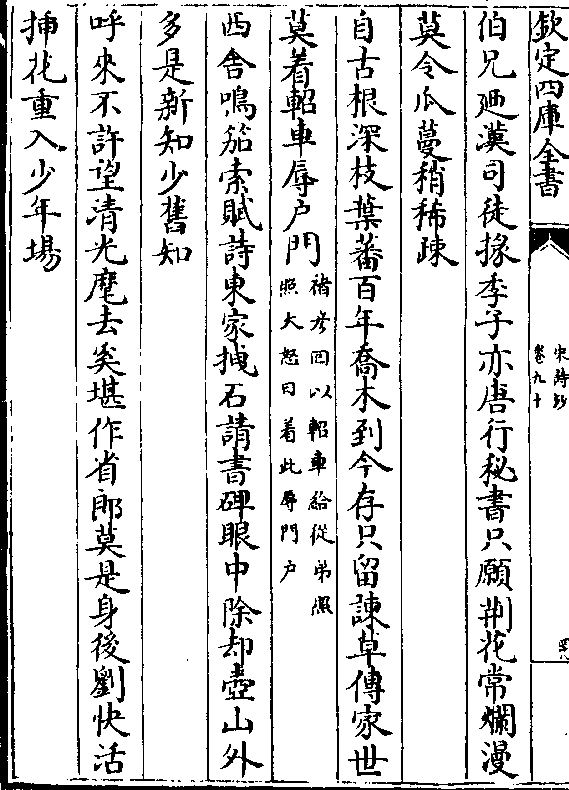 欽定四庫全書
宋詩鈔
卷九十
伯兄廼漢司徒掾季子亦唐行秘書只願荆花常爛漫
莫令瓜蔓稍稀疎
自古根深枝葉蕃百年喬木到今存只留諫草傳家世
莫着軺車辱户門
褚彦回以軺車給從弟照
照大怒曰着此辱門户
西舍鳴笳索賦詩東家拽石請書碑眼中除却壺山外
多是新知少舊知
呼來不許望清光麾去奚堪作省郎莫是身後劉快活
挿花重入少年場